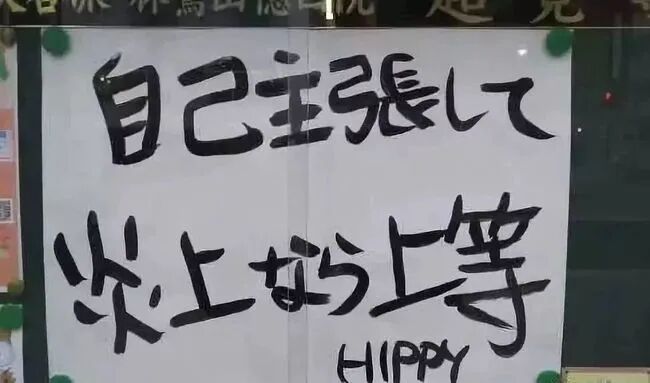 自己主張して
炎上なら上等
HIPPY